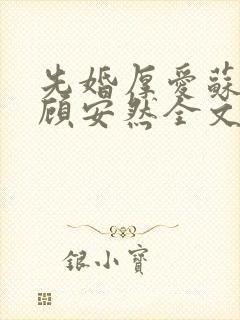 先婚厚愛蘇
顧安然全文
銀小寶